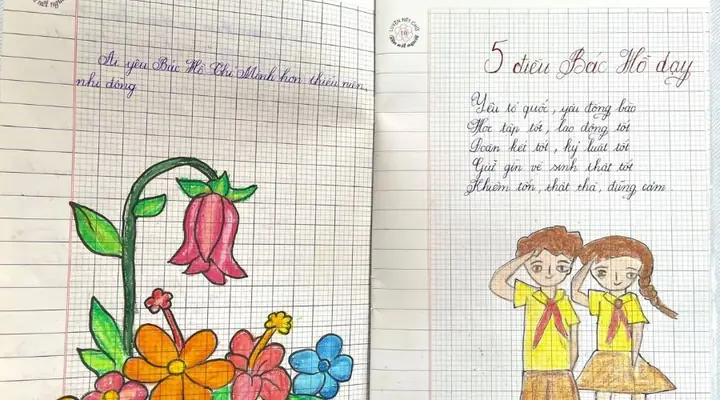 Ai yêu Bác Hồ Chí Minh hơn thiếu niên,
nhi đồng
LUYỆN NÉT CHỮ
RÈN NẾT NGƯỜI
5 điều Bác Hồ dạy
Yêu tổ quốc, yêu đồng bào
Học tập tốt, lao động tốt
Đoàn kết tốt, kỷ luật tốt
Giữ gìn vệ sinh thật tốt
Khiêm tốn, thật thà, dũng cảm